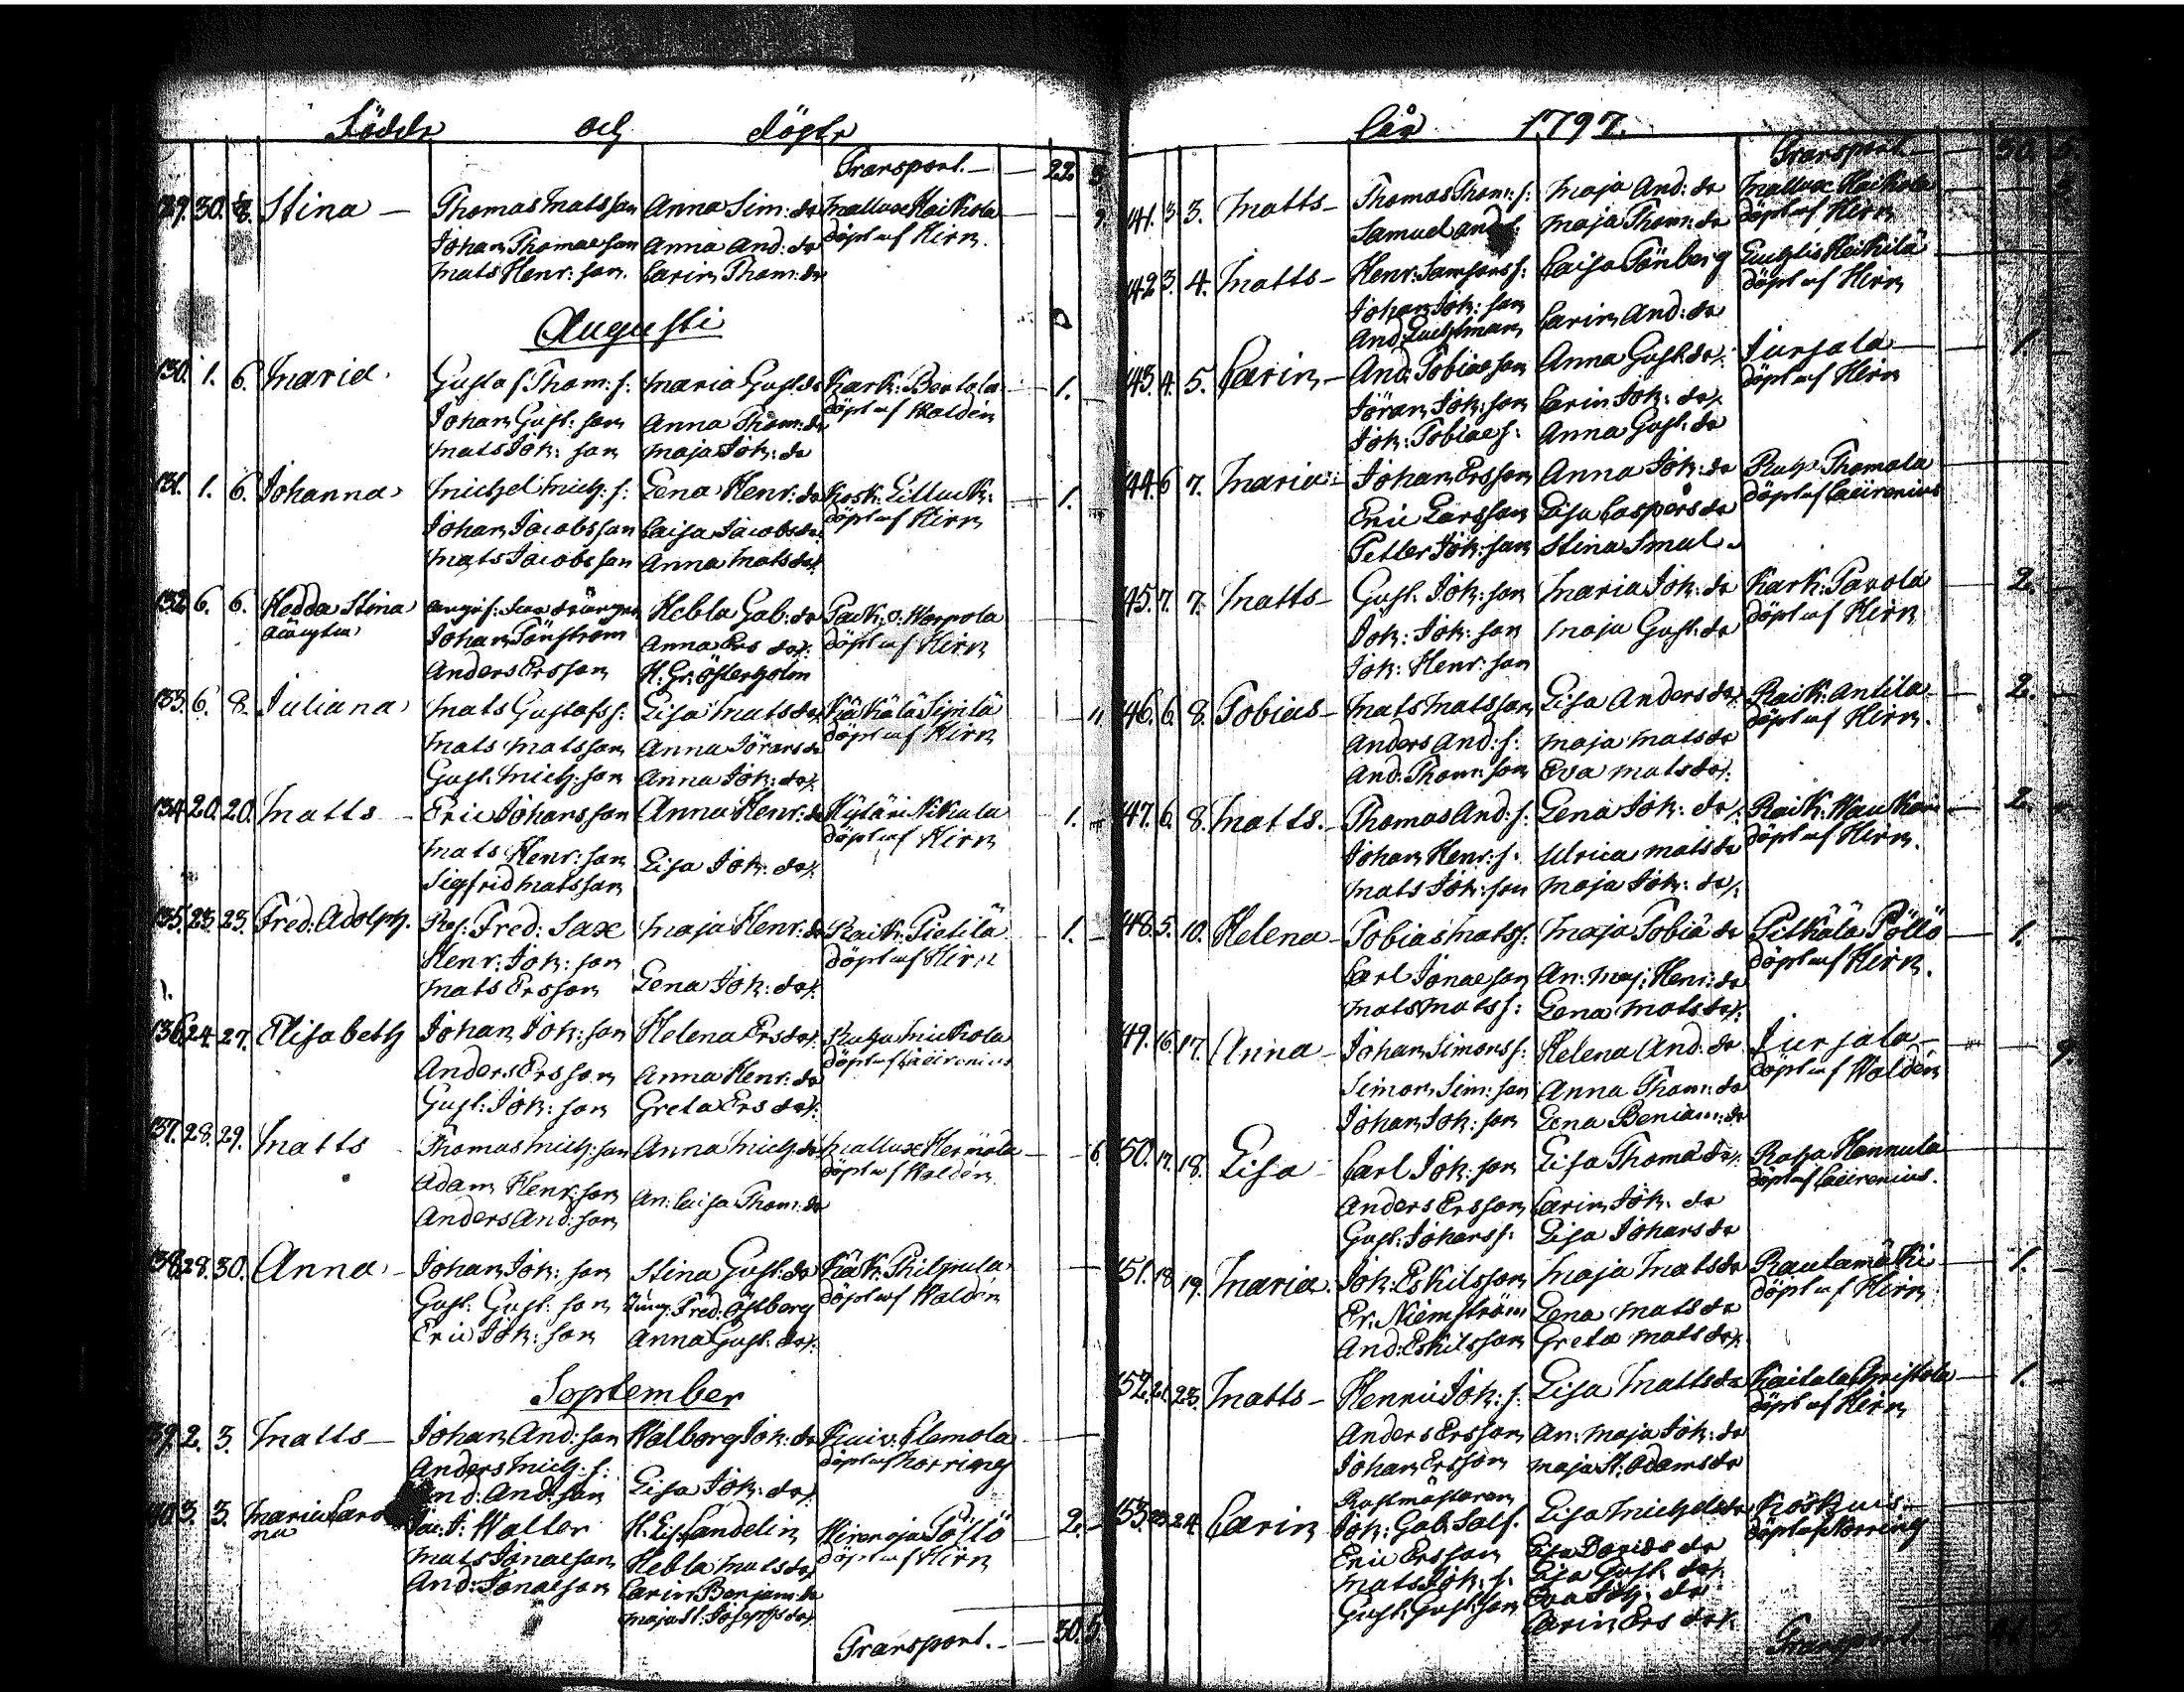 Födde och döpte
Transport. — 22. 3
129. 30. Stina — Thomas Matsson Anna Sim: dr Mallux Heikola 9
Johan Thomaeson Anna And: dr döpt af Hirn.
Mats Henr: son. Carin Thom: dr
Augusti
130. 1. 6. Maria Gustaf Thom: s: Maria Gust. dr Kark: Bertola 1.
Johan Gust: son Anna Thom: dr döpt af Waldén
Mats Joh: son Maja Joh: dr
131. 1. 6. Johanna Michel Mich: s: Lena Henr: dr Kosk: 1.
Johan Jacobsson Caisa Jacobsdr döpt af Hirn
Mats Jacobsson Anna Matsdr
132. 6. 6. Hedda Stina Hebla Gab: dr Paik: o: Warpola
oäagta Johan Tönstrom Anna Ers dr döpt af Hirn
Anders Ersson H: Gr: Österholm
133. 6. 8. Juliana Mats Gustafs s: Lisa Mats dr 11
Mats Matsson Anna Jörans dr döpt af Hirn
Gust. Mich: son Anna Joh: dr
134. 20. 20. Matts — Eric Johansson Anna Henr: dr Hytäri Nikula 1.
Mats Henr: son Lisa Joh: dr döpt af Hirn
Sigfrid Matsson
135. 23. 23. Fred: Adolph. Fred: Sax Maja Henr: dr Raik: Pietilä 1. —
Henr: Joh: son döpt af Hirn
Mats Ersson Lena Joh: dr
136. 24. 27. Elisabeth Johan Joh: son Helena Ersdr
Anders Ersson Anna Henr: dr
Gust: Joh: son Greta Ers dr
137. 28. 29. Matts Thomas Mich: son Anna Mich: dr Mallux Hermola 6
Adam Henr: son An: Caisa Thom: dr döpt af Waldén
Anders And: son
138. 28. 30. Anna — Johan Joh: son Stina Gust: dr Käk: Philpula
Gust: Gust: son Jung: Fred: Östberg döpt af Waldén
Eric Joh: son Anna Gust: dr
September
139. 2. 3. Matts — Johan And: son Walborg Joh: dr Kuiv: Elemola
Anders Mich: s: döpt af Norring
And: And: son Lisa Joh: dr
140. 3. 3. Maria Caro Walter H: Lis: Sandelin Hirvoja Pöllö 2. —
na Mats Jonaeson Hebla Matsdr döpt af Hirn
And: Jonaeson Carin Benjam: dr
Maja St: Josephsdr
Transport. — 30. 5
för 1797.
Transport. — 30. 5.
141. 3. 3. Matts — Thomas Thom: s: Maja And: dr Mallux Heikola
Samuel And: s: Maja Thom: dr döpt af Hirn
142. 3. 4. Matts — Henr: Samsons s: Caisa Tönberg Heikilä
Johan Joh: son Carin And: dr döpt af Hirn
And:
143. 4. 5. Carin — And: Tobiaeson Anna Gust. dr Jursala 1.
Jöran Joh: son Carin Joh: dr döpt af Hirn
Joh: Tobiae s: Anna Gust: dr
144. 6 7. Maria Johan Ersson Anna Joh: dr Ruha Thomola
Eric Larsson Lisa Caspersdr
Petter Joh: son Stina Smul
145. 7. 7. Matts — Gust. Joh: son Maria Joh: dr Kark: Pavola 2.
Joh: Joh: son Maja Gust: dr döpt af Hirn
Joh: Henr: son
146. 6. 8. Tobias — Mats Matsson Lisa Andersdr Raik: Antila 2.
Anders And: s: Maja Matsdr döpt af Hirn.
And: Thom: son Eva Matsdr
147. 6. 8. Matts. — Thomas And: s: Lena Joh: dr 2.
Johan Henr: s: Ulrica Matsdr döpt af Hirn.
Mats Joh: son Maja Joh: dr
148. 5. 10. Helena — Tobias Mats s: Maja Tobiæ dr Pitkälä Pöllö 1. —
Carl Jonaeson An: Maj: Henr: dr döpt af Hirn.
Mats Mats s: Lena Matsdr
149. 16. 17. Anna — Johan Simons s: Helena And: dr Jursala — 9.
Simon Sim: son Anna Thom: dr döpt af Waldén
Johan Joh: son Lena Beniam: dr
150. 17. 18. Lisa — Carl Joh: son Lisa Thomæ dr Ruha Hannula
Anders Ersson Carin Joh: dr
Gust: Johans s: Lisa Johansdr
151. 18. 19. Maria. Joh: Eskilsson Maja Matsdr Rautamäki 1. —
Er: Niemström Lena Matsdr döpt af Hirn
And: Eskilsson Greta Matsdr
152. 21. 23. Matts — Henric Joh: s: Lisa Mattsdr Kaitala Christola 1. —
Anders Ersson An: Maja Joh: dr döpt af Hirn
Johan Ersson Maja St: Adamsdr
Rustmästaren
153. 23. 24. Carin Joh: Gab: Salf. Lisa Michelsdr Köskuis
Eric Ersson Lisa Davidsdr döpt af Norring
Mats Joh: s: Lisa Gust: dr
Gust: Gust: son Eva Joh: dr
Carin Ers dr
Transport.